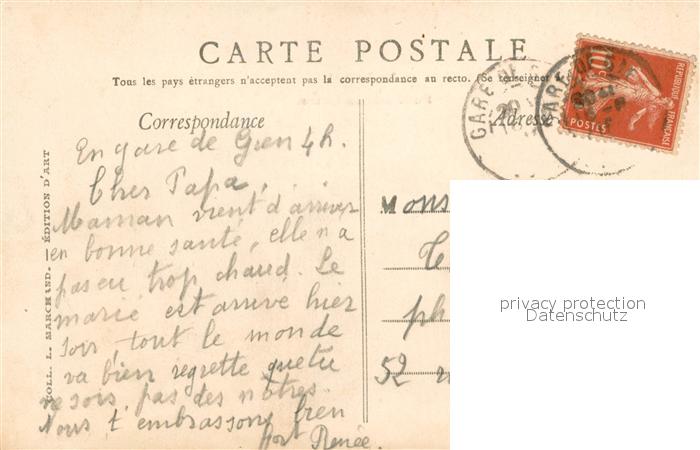 CARTE POSTALE
Tous les pays étrangers n'acceptent pas la correspondance au recto. (Se renseigner
Correspondance
Adresse
COLL. L. MARCHAND. — ÉDITION D'ART
10c
RÉPUBLIQUE FRANÇAISE
POSTES
GARE DE
GARE
En gare de Gien 4h.
Cher Papa,
Maman vient d'arriver
en bonne santé, elle n'a
pas eu trop chaud. Le
marié est arrivé hier
soir, tout le monde
va bien regrette que tu
ne sois pas des nôtres.
Nous t'embrassons bien
fort Renée.
Mons
ph
52
privacy protection
Datenschutz